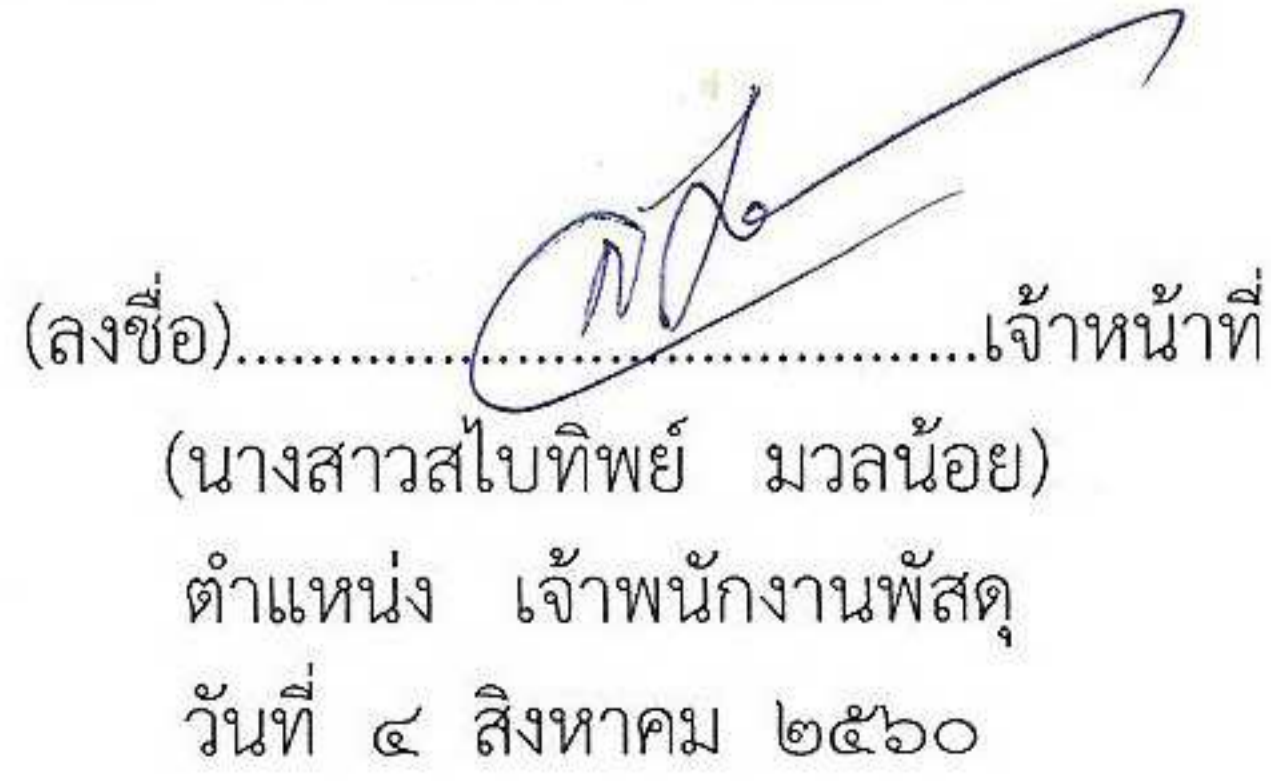 (ลงชื่อ)........................................เจ้าหน้าที่
(นางสาวสไบทิพย์ มวลน้อย)
ตำแหน่ง เจ้าพนักงานพัสดุ
วันที่ ๔ สิงหาคม ๒๕๖๐